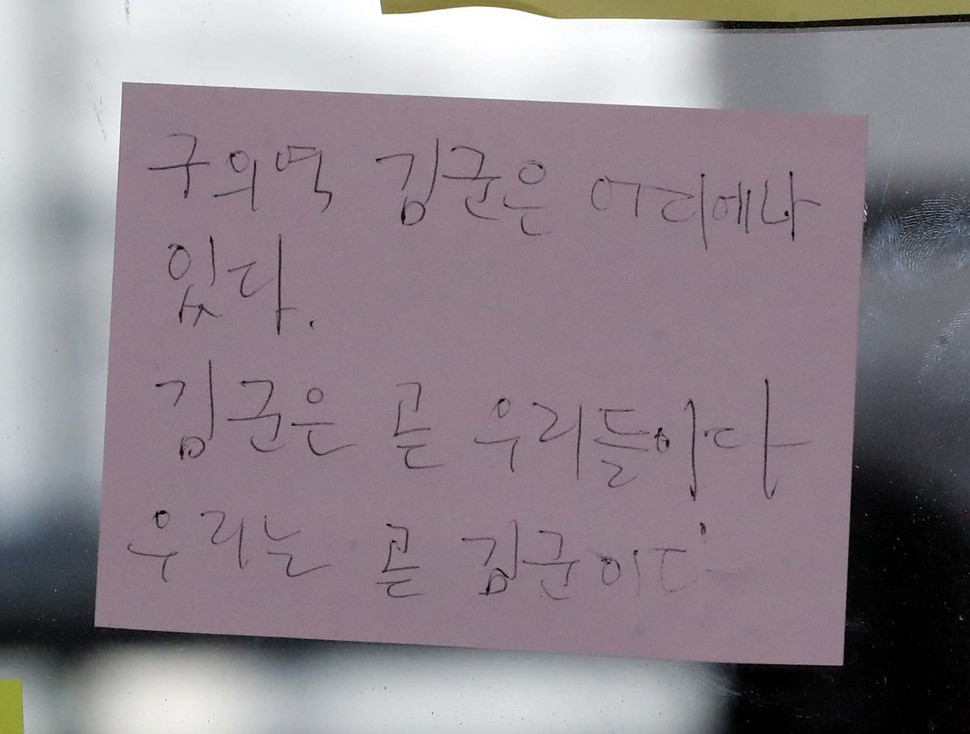 구의역 김군은 어디에나
있다.
김군은 곧 우리들이다
우리는 곧 김군이다